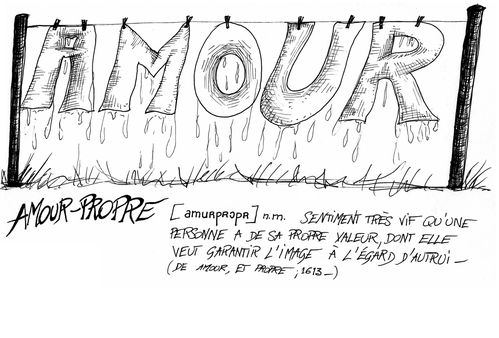 AMOUR
AMOUR-PROPRE [amurprɔpr] n.m. SENTIMENT TRÈS VIF QU'UNE
PERSONNE A DE SA PROPRE VALEUR, DONT ELLE
VEUT GARANTIR L'IMAGE À L'ÉGARD D'AUTRUI _
(DE AMOUR, ET PROPRE ; 1613 _)